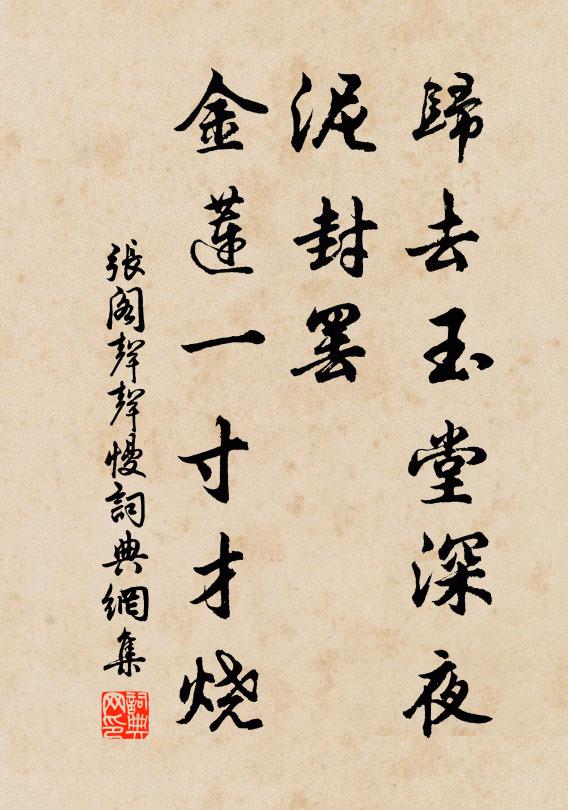 歸去玉堂深夜
泥封罢
金蓮一寸才烧
張阁聲聲慢詞典網集
詞典网印